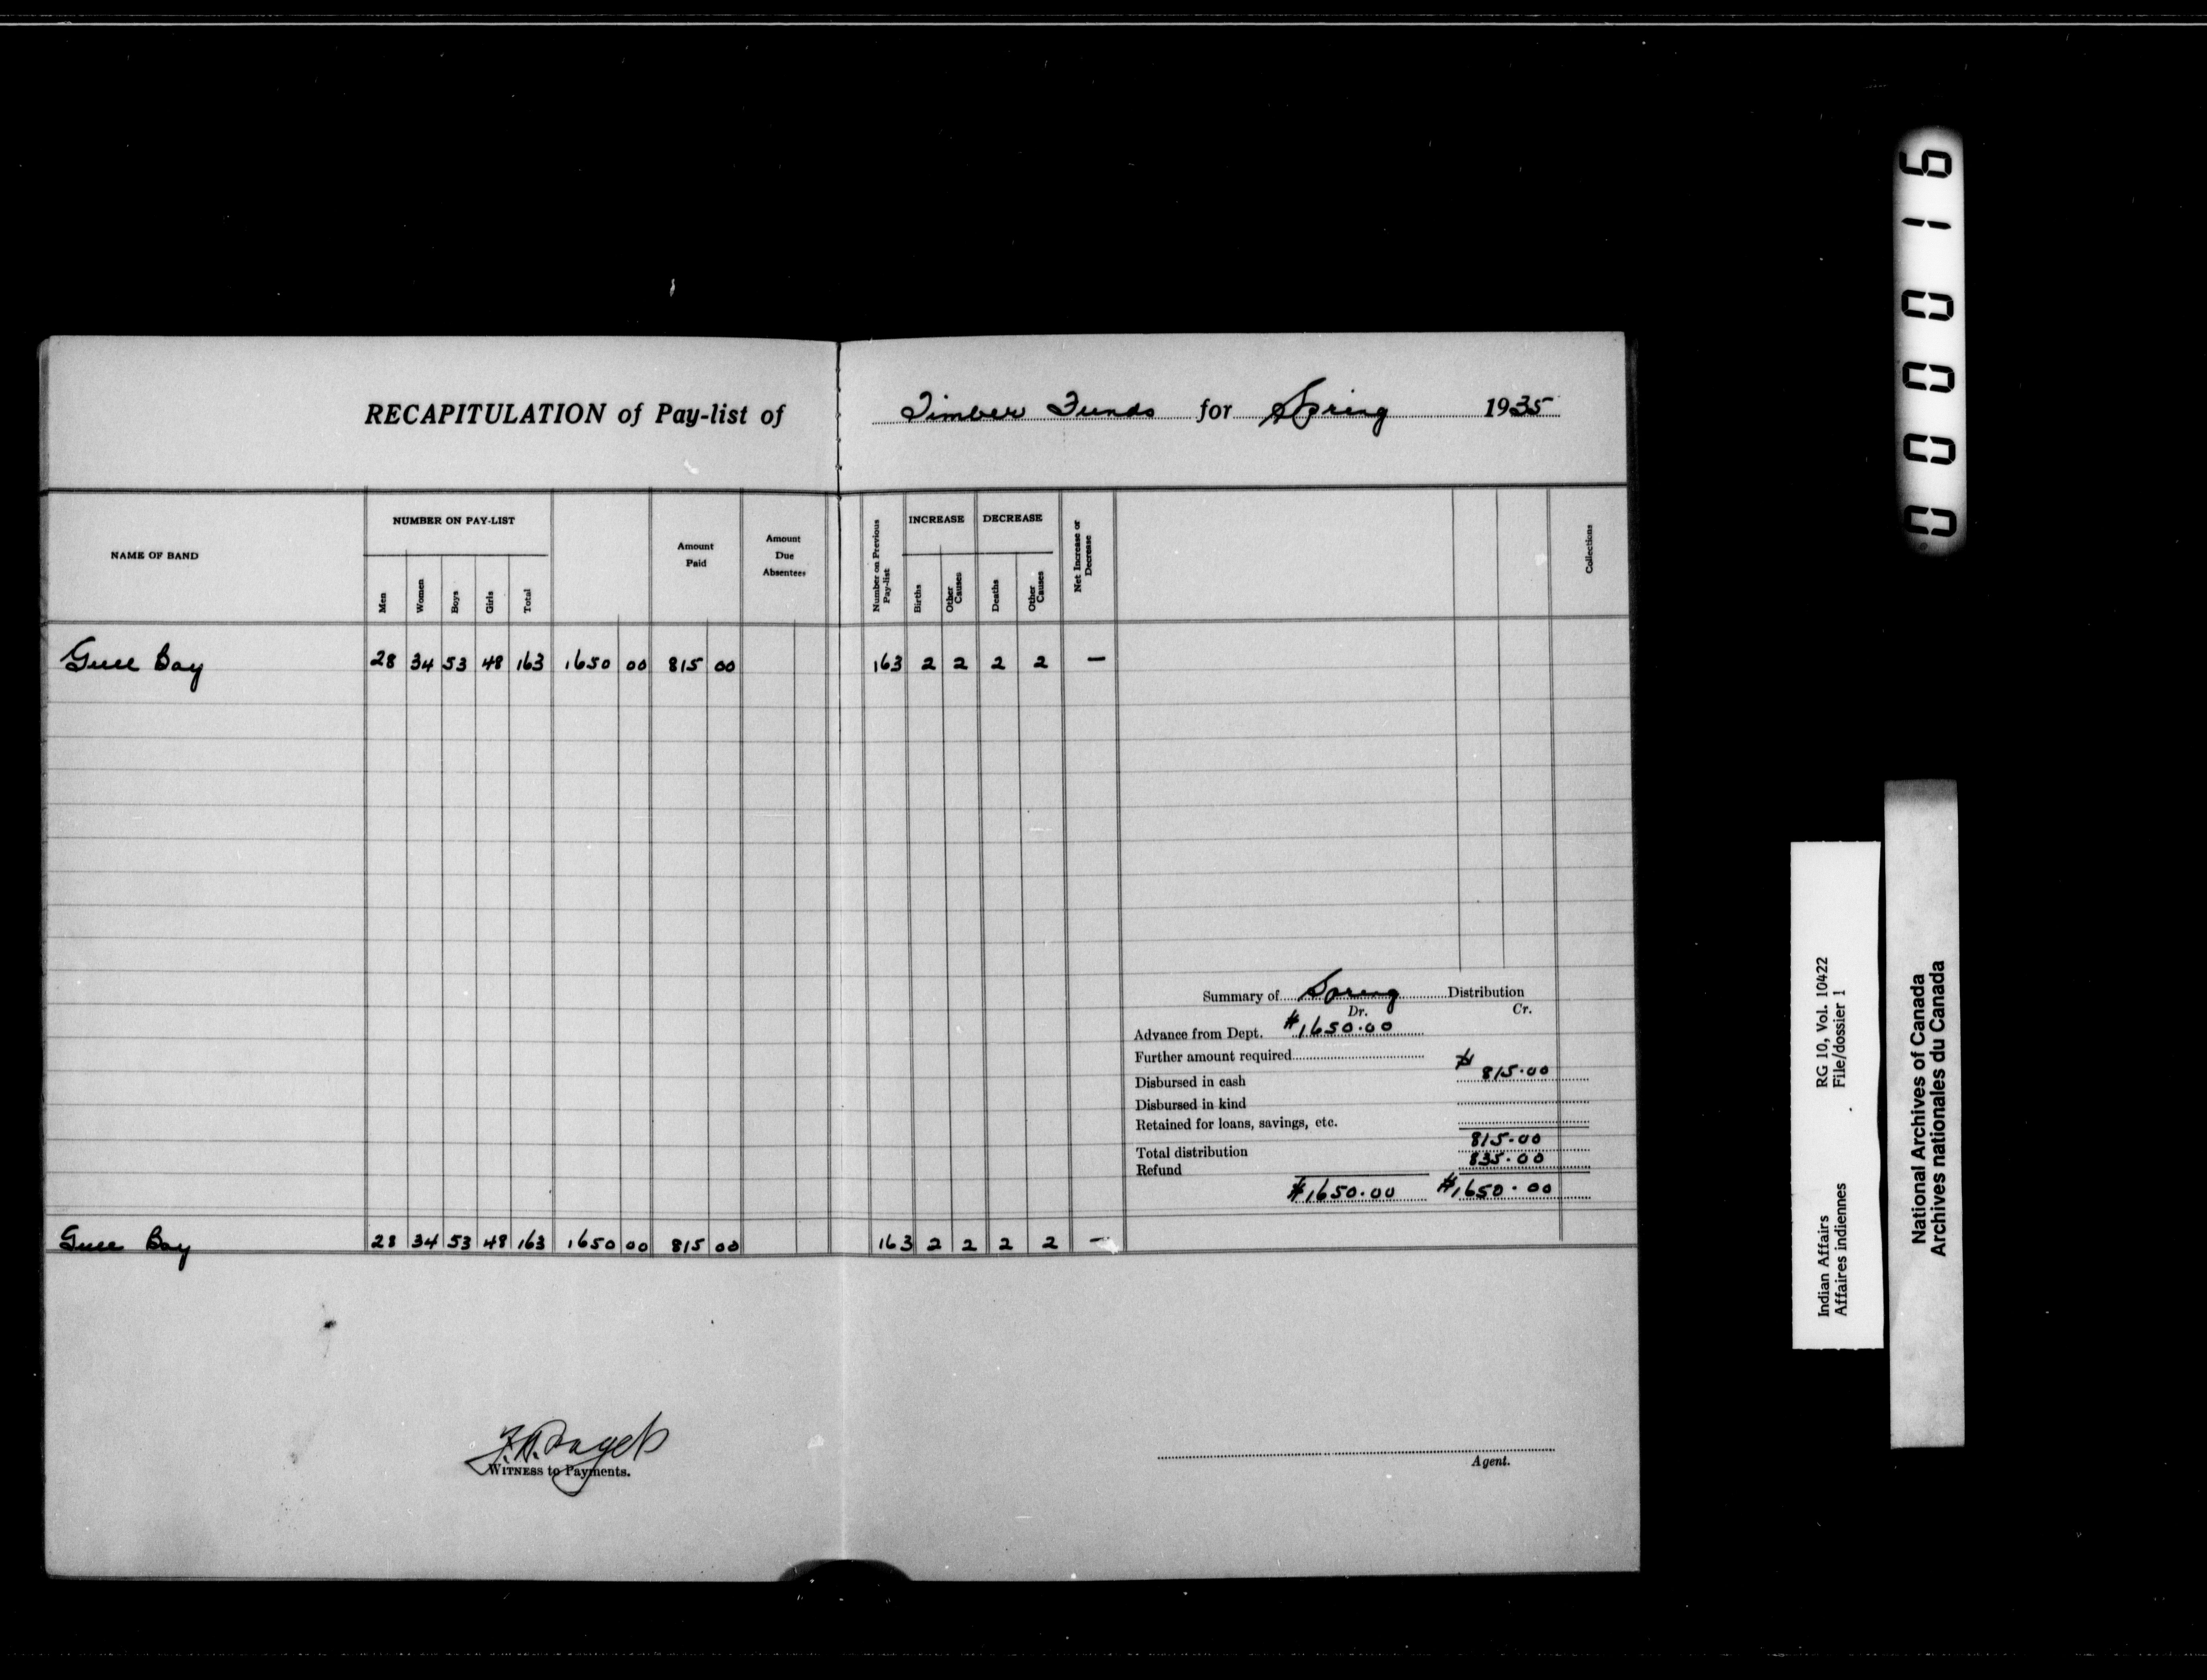 RECAPITULATION of Pay-list of Timber Funds for Spring 1935
NAME OF BAND
NUMBER ON PAY-LIST
Men
Women
Boys
Girls
Total
Amount Paid
Amount Due Absentees
Number on Previous Pay-list
INCREASE
Births
Other Causes
DECREASE
Deaths
Other Causes
Net Increase or Decrease
Collections
Gull Bay 28 34 53 48 163 1650 00 815 00 163 2 2 2 2 —
Summary of Spring Distribution
Dr. Cr.
Advance from Dept. $1650.00
Further amount required
Disbursed in cash $815.00
Disbursed in kind
Retained for loans, savings, etc.
815.00
Total distribution
Refund 835.00
$1650.00 $1650.00
Gull Bay 28 34 53 48 163 1650 00 815 00 163 2 2 2 2 —
WITNESS to Payments.
Agent.
000016
Indian Affairs RG 10, Vol. 10422
Affaires indiennes File/dossier 1
National Archives of Canada
Archives nationales du Canada